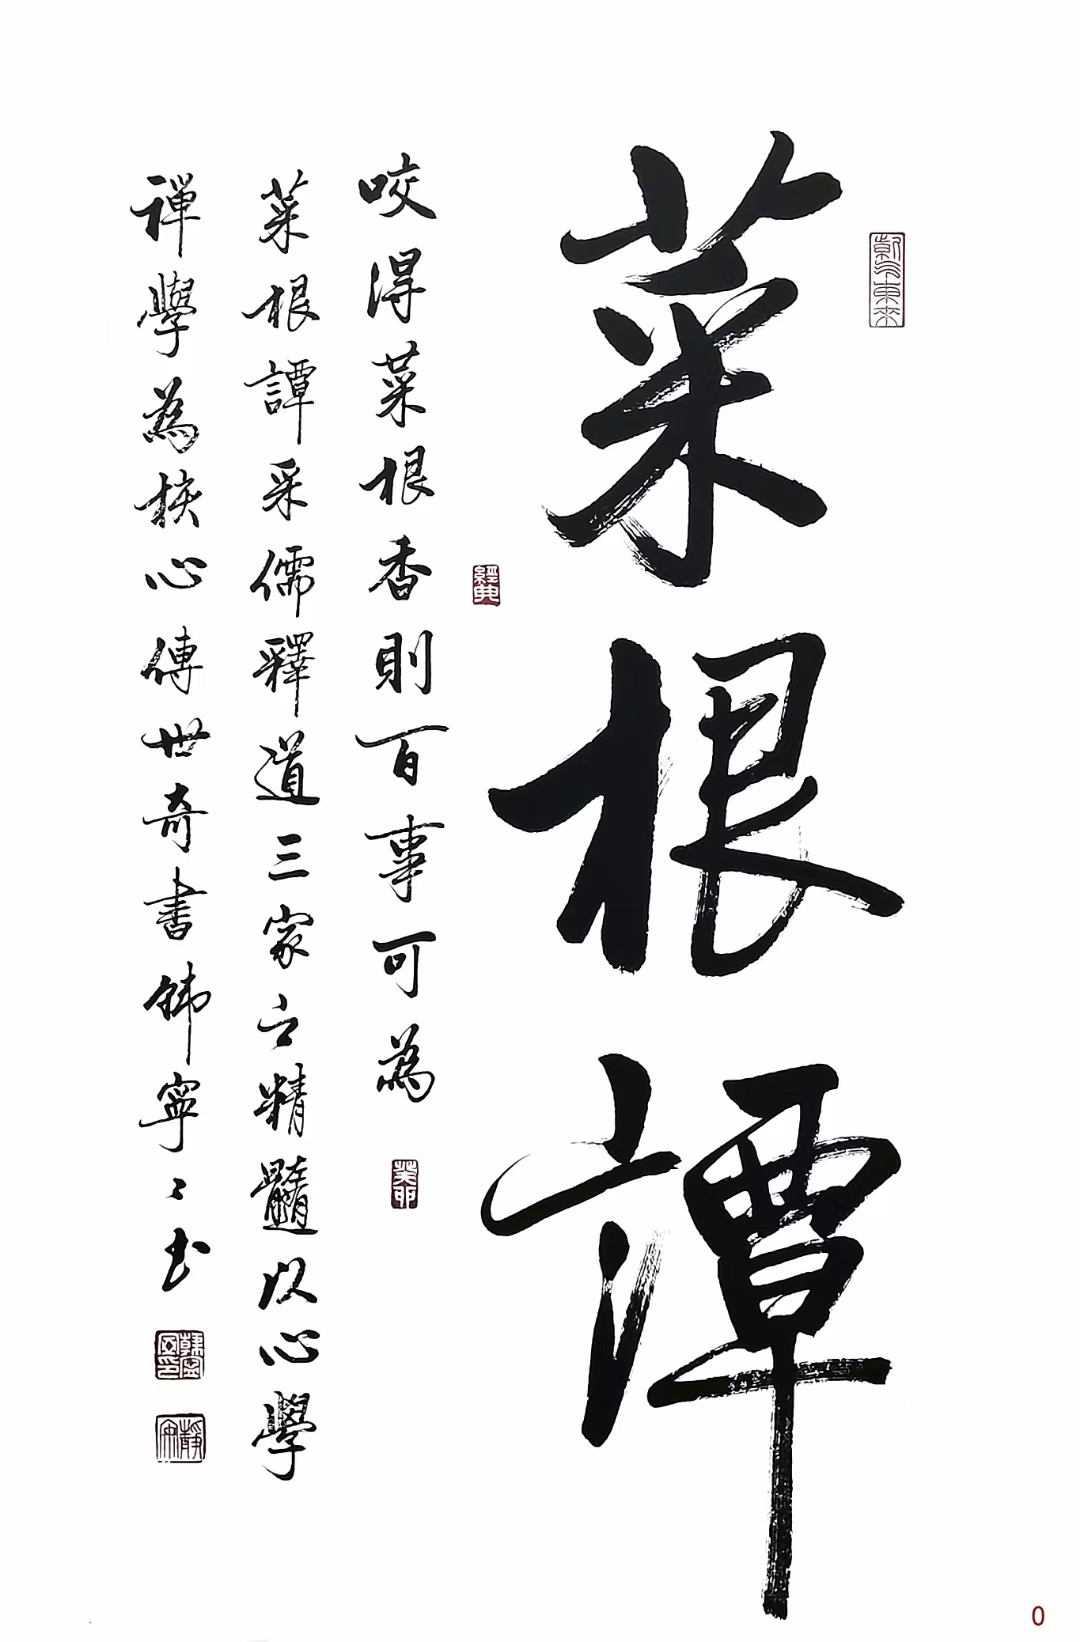 菜根譚
咬得菜根香則百事可為
菜根譚采儒釋道三家之精髓以心學
禪學為核心傳世奇書韩寧寧书
經典
癸卯
0